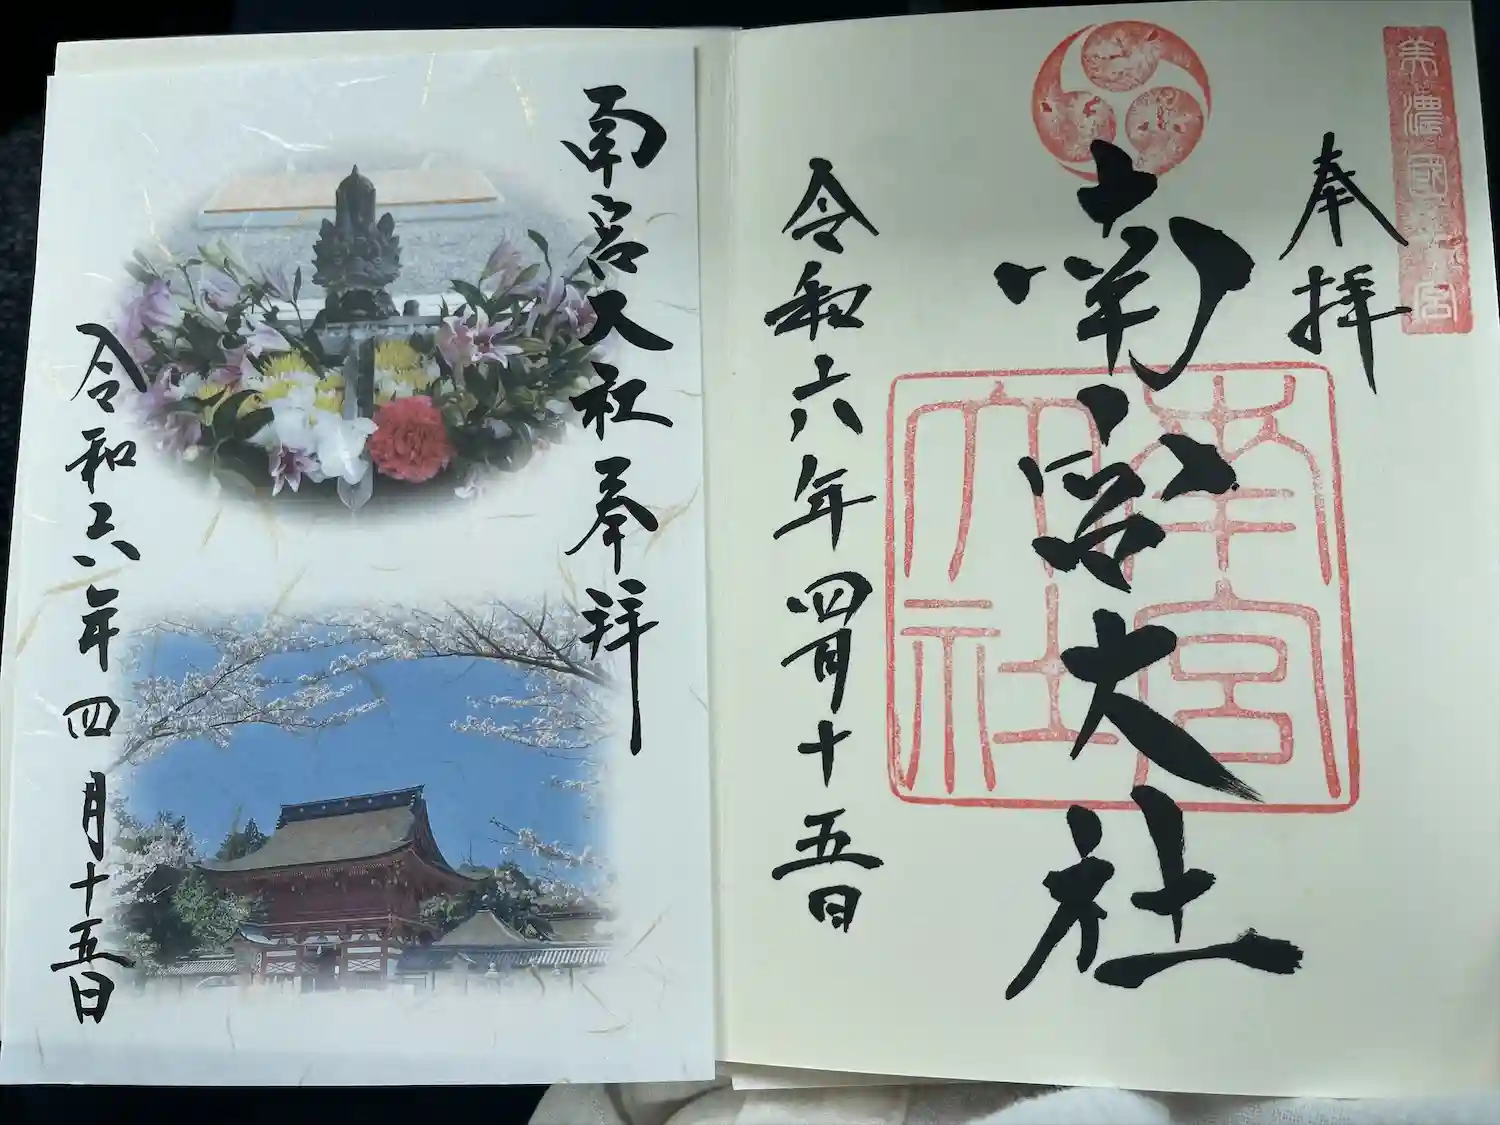 美濃國一宮
奉拝
南宮大社
南宮大社
令和六年四月十五日
南宮大社奉拝
令和六年四月十五日